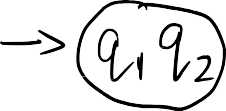 → q₁ q₂